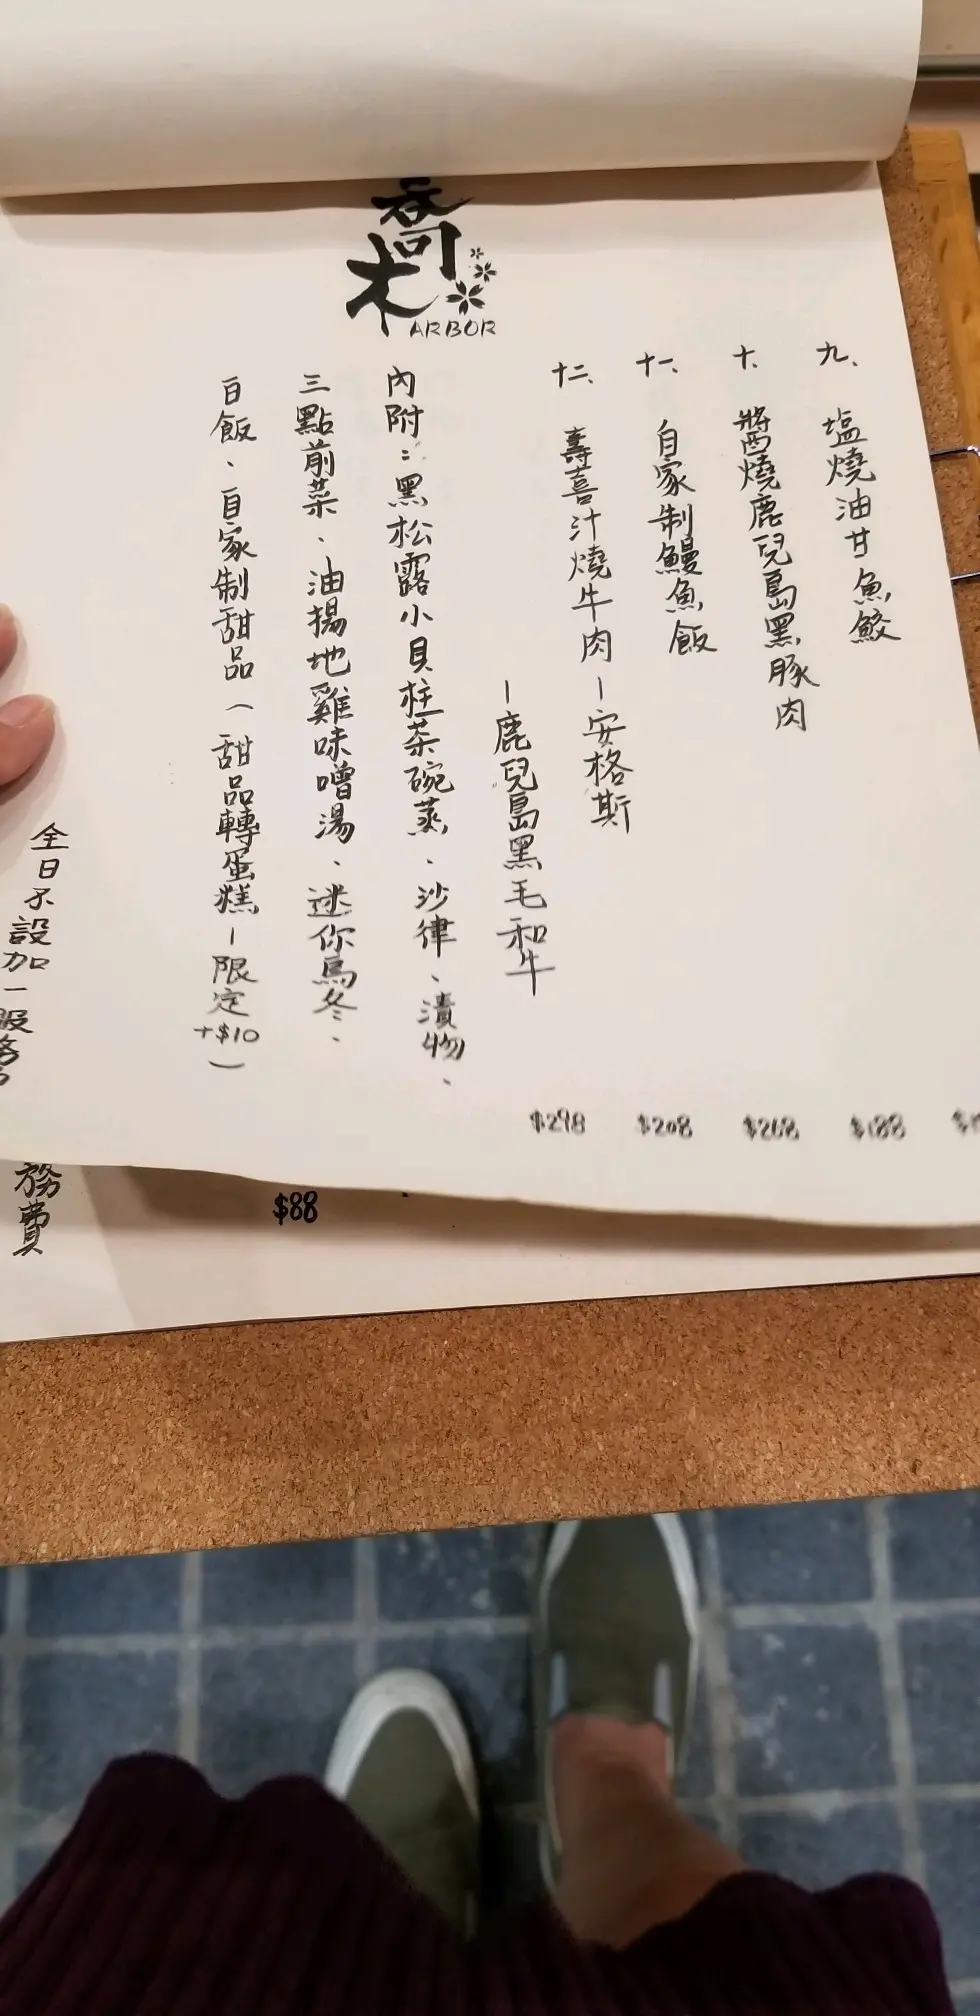 喬木
ARBOR
九、塩燒油甘魚鮫
十、醬燒鹿兒島黑豚肉
十一、自家制鰻魚飯
十二、壽喜汁燒牛肉－安格斯
－鹿兒島黑毛和牛
內附：黑松露小貝柱茶碗蒸、沙律、漬物、
三點前菜、油揚地雞味噌湯、迷你烏冬、
白飯、自家制甜品（甜品轉蛋糕－限定+$10）
$188
$268
$208
$298
全日不設加一服務
務費
$88